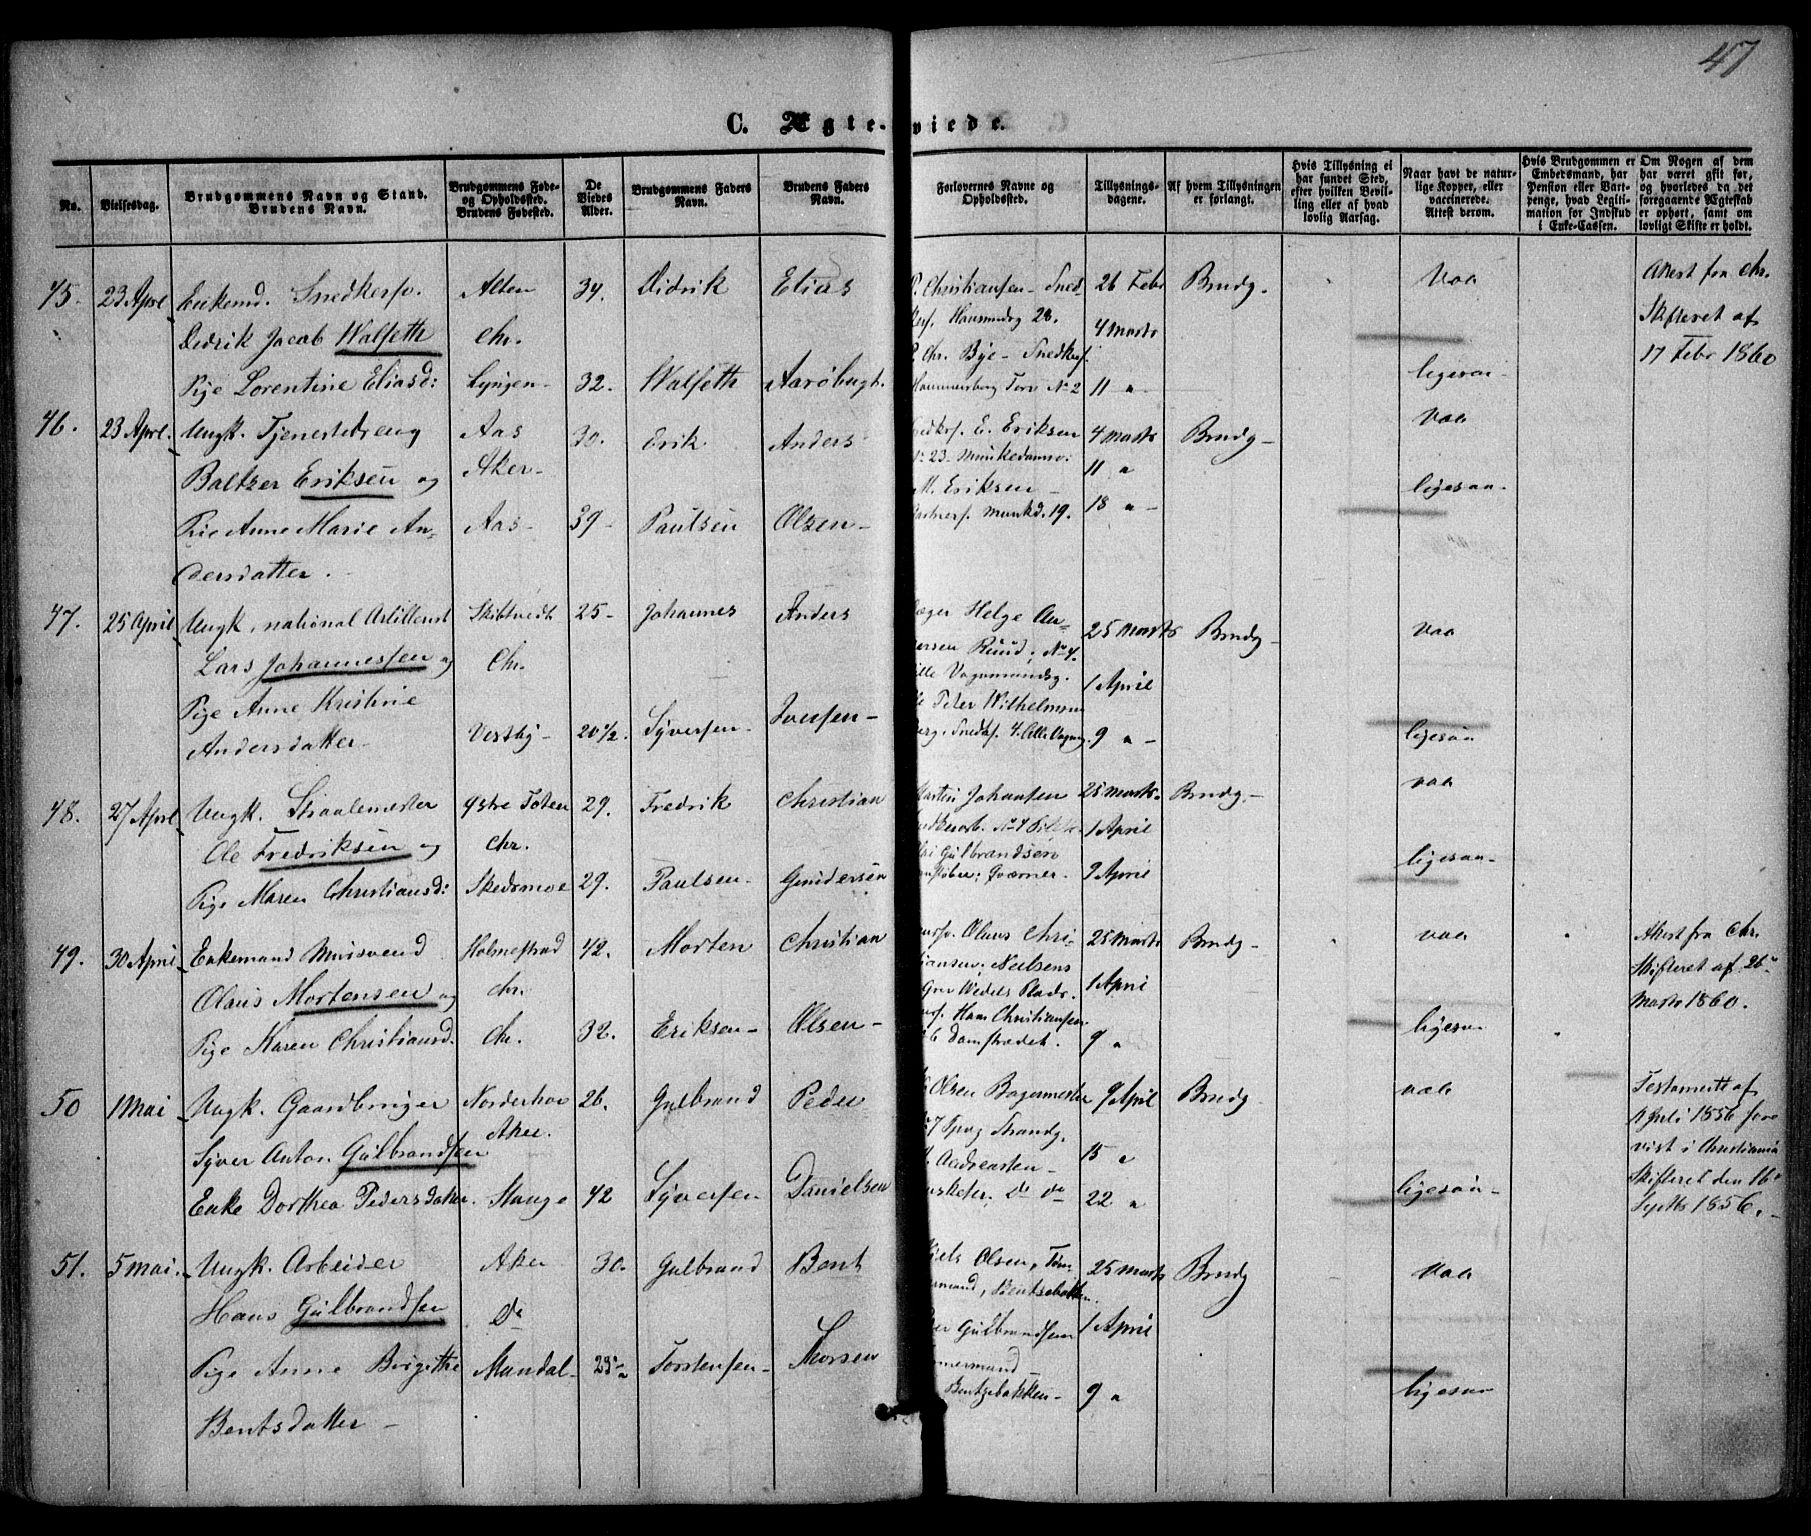 47
C. Ægte-viede.
No.
Vielsesdag.
Brudgommens Navn og Stand.
Brudens Navn.
Brudgommens Føde-
og Opholdssted.
Brudens Fødested.
De
Viedes
Alder.
Brudgommens Faders
Navn.
Brudens Faders
Navn.
Forlovernes Navne og
Opholdssted.
Tillysnings-
dagene.
Af hvem Tillysningen
er forlangt.
Hvis Tillysning ei
har fundet Sted,
efter hvilken Bevil-
ling eller af hvad
lovlig Aarsag.
Naar havt de natur-
lige Kopper, eller
vaccinerede.
Attest derom.
Hvis Brudgommen er
Embedsmand, har
Pension eller Vart-
penge, hvad Legiti-
mation for Indskud
i Enke-Cassen.
Om Nogen af dem
har været gift før,
og hvorledes da det
foregaaende Ægteskab
er ophørt, samt om
lovligt Skifte er holdt.
45. 23 April Enkemd. Snedkersv. Alten 34. Didrik Elias
Didrik Jacob Walseth Chr.
Pige Lorentine Eliasd: Lyngen 32. Walseth Aarøbugt.
P. Christiansen Sned- 26 Febr Brudg. Vaa Attest fra Chr.
Hausmndsg 28. 4 Marts Skifteret af
Chr. Bye - Snedkers. 17 Febr 1860
Hammersborg Torv No 2 11 " ligesaa
46. 23 April. Ungk. Tjenestedreng Aas 30. Erik Anders
Baltzer Eriksen og Aker
Pige Anne Marie An- Aas 39 Paulsen Olsen
dersdatter.
E. Eriksen 4 Marts Brudg Vaa
23 Munkedamsv: 11 "
M. Eriksen ligesaa
Munkd. 19. 18 "
47. 25 April Ungk. national Artillerist Skibtvedt 25 Johannes Anders
Lars Johannessen og Chr.
Pige Anne Kristine
Andersdatter Vestby 20 1/2. Syversen Iversen
Helge An- 25 Marts Brudg vaa
dersen Ruud, No 4.
Lille Vognmandsg. 1 April
Peter Wilhelmsen
Berg. Snedks. 4. Lille Vognmg. 9 " ligesaa
48. 27 April Ungk. Straalemester Østre Toten 29. Fredrik Christian
Ole Fredriksen og Chr.
Pige Maren Christiansd: Skedsmoe 29. Paulsen Gundersen
Martin Johansen 25 Marts. Brudg. vaa
1 April
Gulbrandsen ligesaa
Qværner. 9 April
49. 30 April Enkemand Muursvend Holmestrand 42. Morten Christian
Olaus Mortensen og Chr.
Pige Karen Christiansd. Chr. 32. Eriksen Olsen
Olaus Chri- 25 Marts Brudg vaa Attest fra Chr.
stiansen, Neilsens Skifteret af 26
Grev Wedels Plads. 1 April Marts 1860.
Hans Christiansen ligesaa
6 Damstrædet. 9 "
50 1 Mai Ungk. Gaardbruger Norderhov 26. Gulbrand Peder
Syver Anton Gulbrandsen Aker.
Enke Dorthea Pedersdatter. Stange 42 Syversen Danielsen
Olsen Bagermester 9 April Brudg. vaa Testamente af
Strandg. April 1856 fore
Andreassen 15 " vist i Christiania
do do 22 " ligesaa Skifteret den 16
Septbr 1856.
51. 5 Mai. Ungk. Arbeider Aker 30. Gulbrand Bent
Hans Gulbrandsen Do
Pige Anne Birgithe Mandal Torstensen
Bentsdatter
Niels Olsen, Tøm- 25 Marts Brudg vaa
mermand, Bentsebakken.
Gulbrandsen 1 April
Tømmermand
Bentsebakken 9 " ligesaa